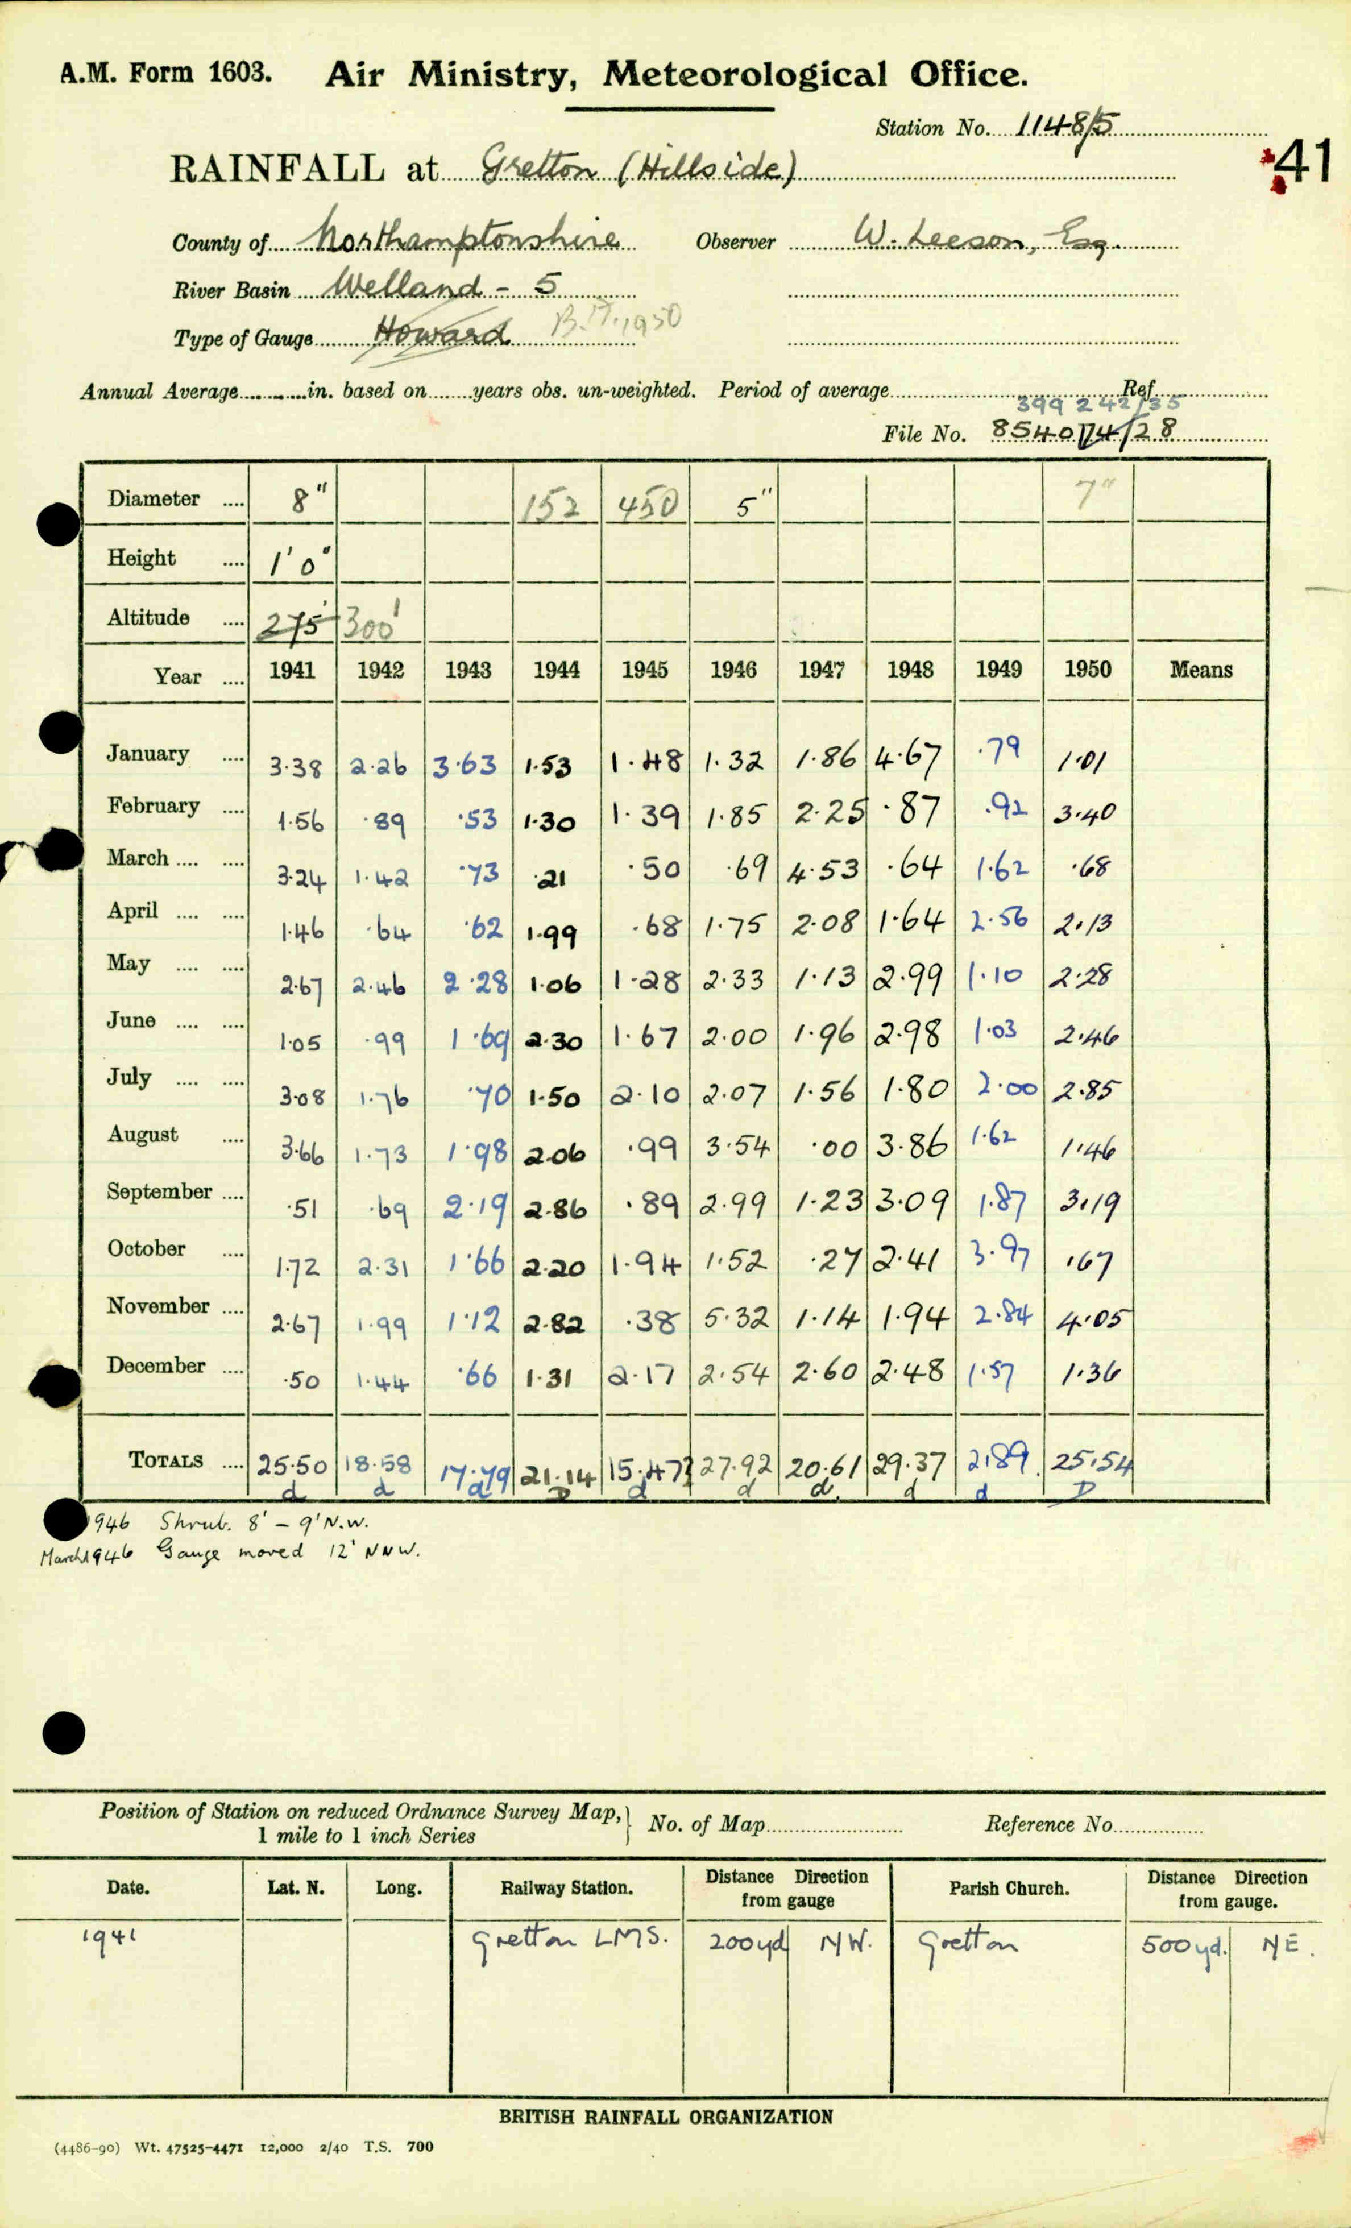 A.M. Form 1603. Air Ministry, Meteorological Office.
Station No. 1148/5
41
RAINFALL at Gretton (Hillside)
County of Northamptonshire Observer W. Leeson, Esq.
River Basin Welland - 5
Type of Gauge Howard 1950
Annual Average in. based on years obs. un-weighted. Period of average Ref.
399 242/35
File No. 8540 74/28
Diameter 8" 152 450 5" 7"
Height 1' 0"
Altitude 275' 300'
Year 1941 1942 1943 1944 1945 1946 1947 1948 1949 1950 Means
January 3.38 2.26 3.63 1.53 1.48 1.32 1.86 4.67 .79 1.01
February 1.56 .89 .53 1.30 1.39 1.85 2.25 .87 .92 3.40
March 3.24 1.42 .73 .21 .50 .69 4.53 .64 1.62 .68
April 1.46 .64 .62 1.99 .68 1.75 2.08 1.64 2.56 2.13
May 2.67 2.46 2.28 1.06 1.28 2.33 1.13 2.99 1.10 2.28
June 1.05 .99 1.69 2.30 1.67 2.00 1.96 2.98 1.03 2.46
July 3.08 1.76 .70 1.50 2.10 2.07 1.56 1.80 2.00 2.85
August 3.66 1.73 1.98 2.06 .99 3.54 .00 3.86 1.62 1.46
September .51 .69 2.19 2.86 .89 2.99 1.23 3.09 1.87 3.19
October 1.72 2.31 1.66 2.20 1.94 1.52 .27 2.41 3.97 .67
November 2.67 1.99 1.12 2.82 .38 5.32 1.14 1.94 2.84 4.05
December .50 1.44 .66 1.31 2.17 2.54 2.60 2.48 1.57 1.36
TOTALS 25.50 18.58 17.79 21.14 15.47 27.92 20.61 29.37 21.89 25.54
d d d D d d d. d d D
1946 Shrub. 8' - 9' N.W.
March 1946 Gauge moved 12' NNW.
Position of Station on reduced Ordnance Survey Map, 1 mile to 1 inch Series No. of Map Reference No.
Date. Lat. N. Long. Railway Station. Distance Direction from gauge Parish Church. Distance Direction from gauge.
1941 Gretton LMS. 200yd NW. Gretton 500yd. NE.
BRITISH RAINFALL ORGANIZATION
(4486-90) Wt. 47525-4471 12,000 2/40 T.S. 700